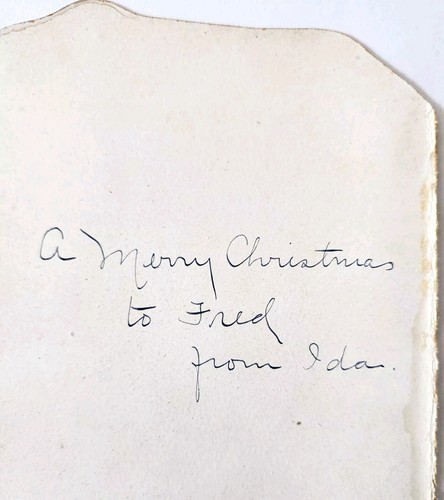 A Merry Christmas
to Fred
from Ida.